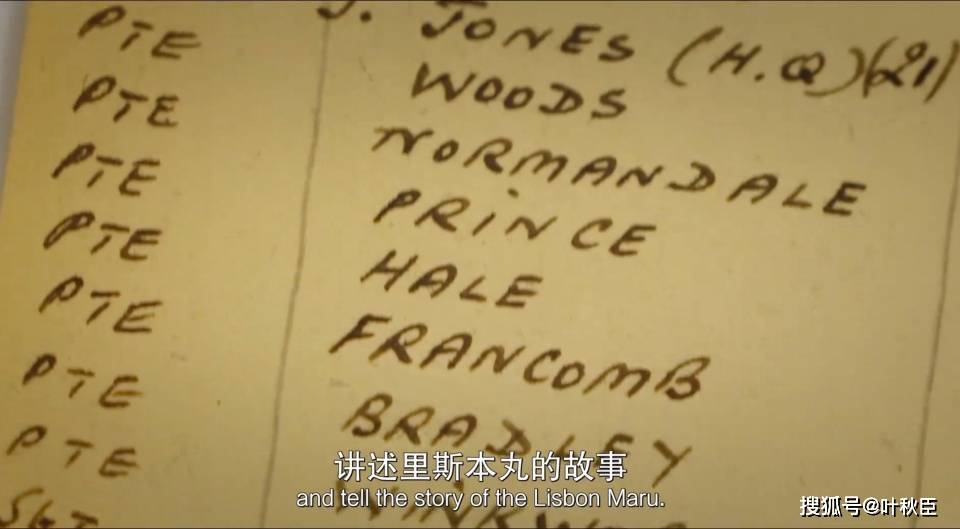 PTE J. JONES (H.Q)(21)
PTE WOODS
PTE NORMANDALE
PTE PRINCE
PTE HALE
PTE FRANCOMB
PTE BRADLEY
讲述里斯本丸的故事
and tell the story of the Lisbon Maru.
搜狐号@叶秋臣